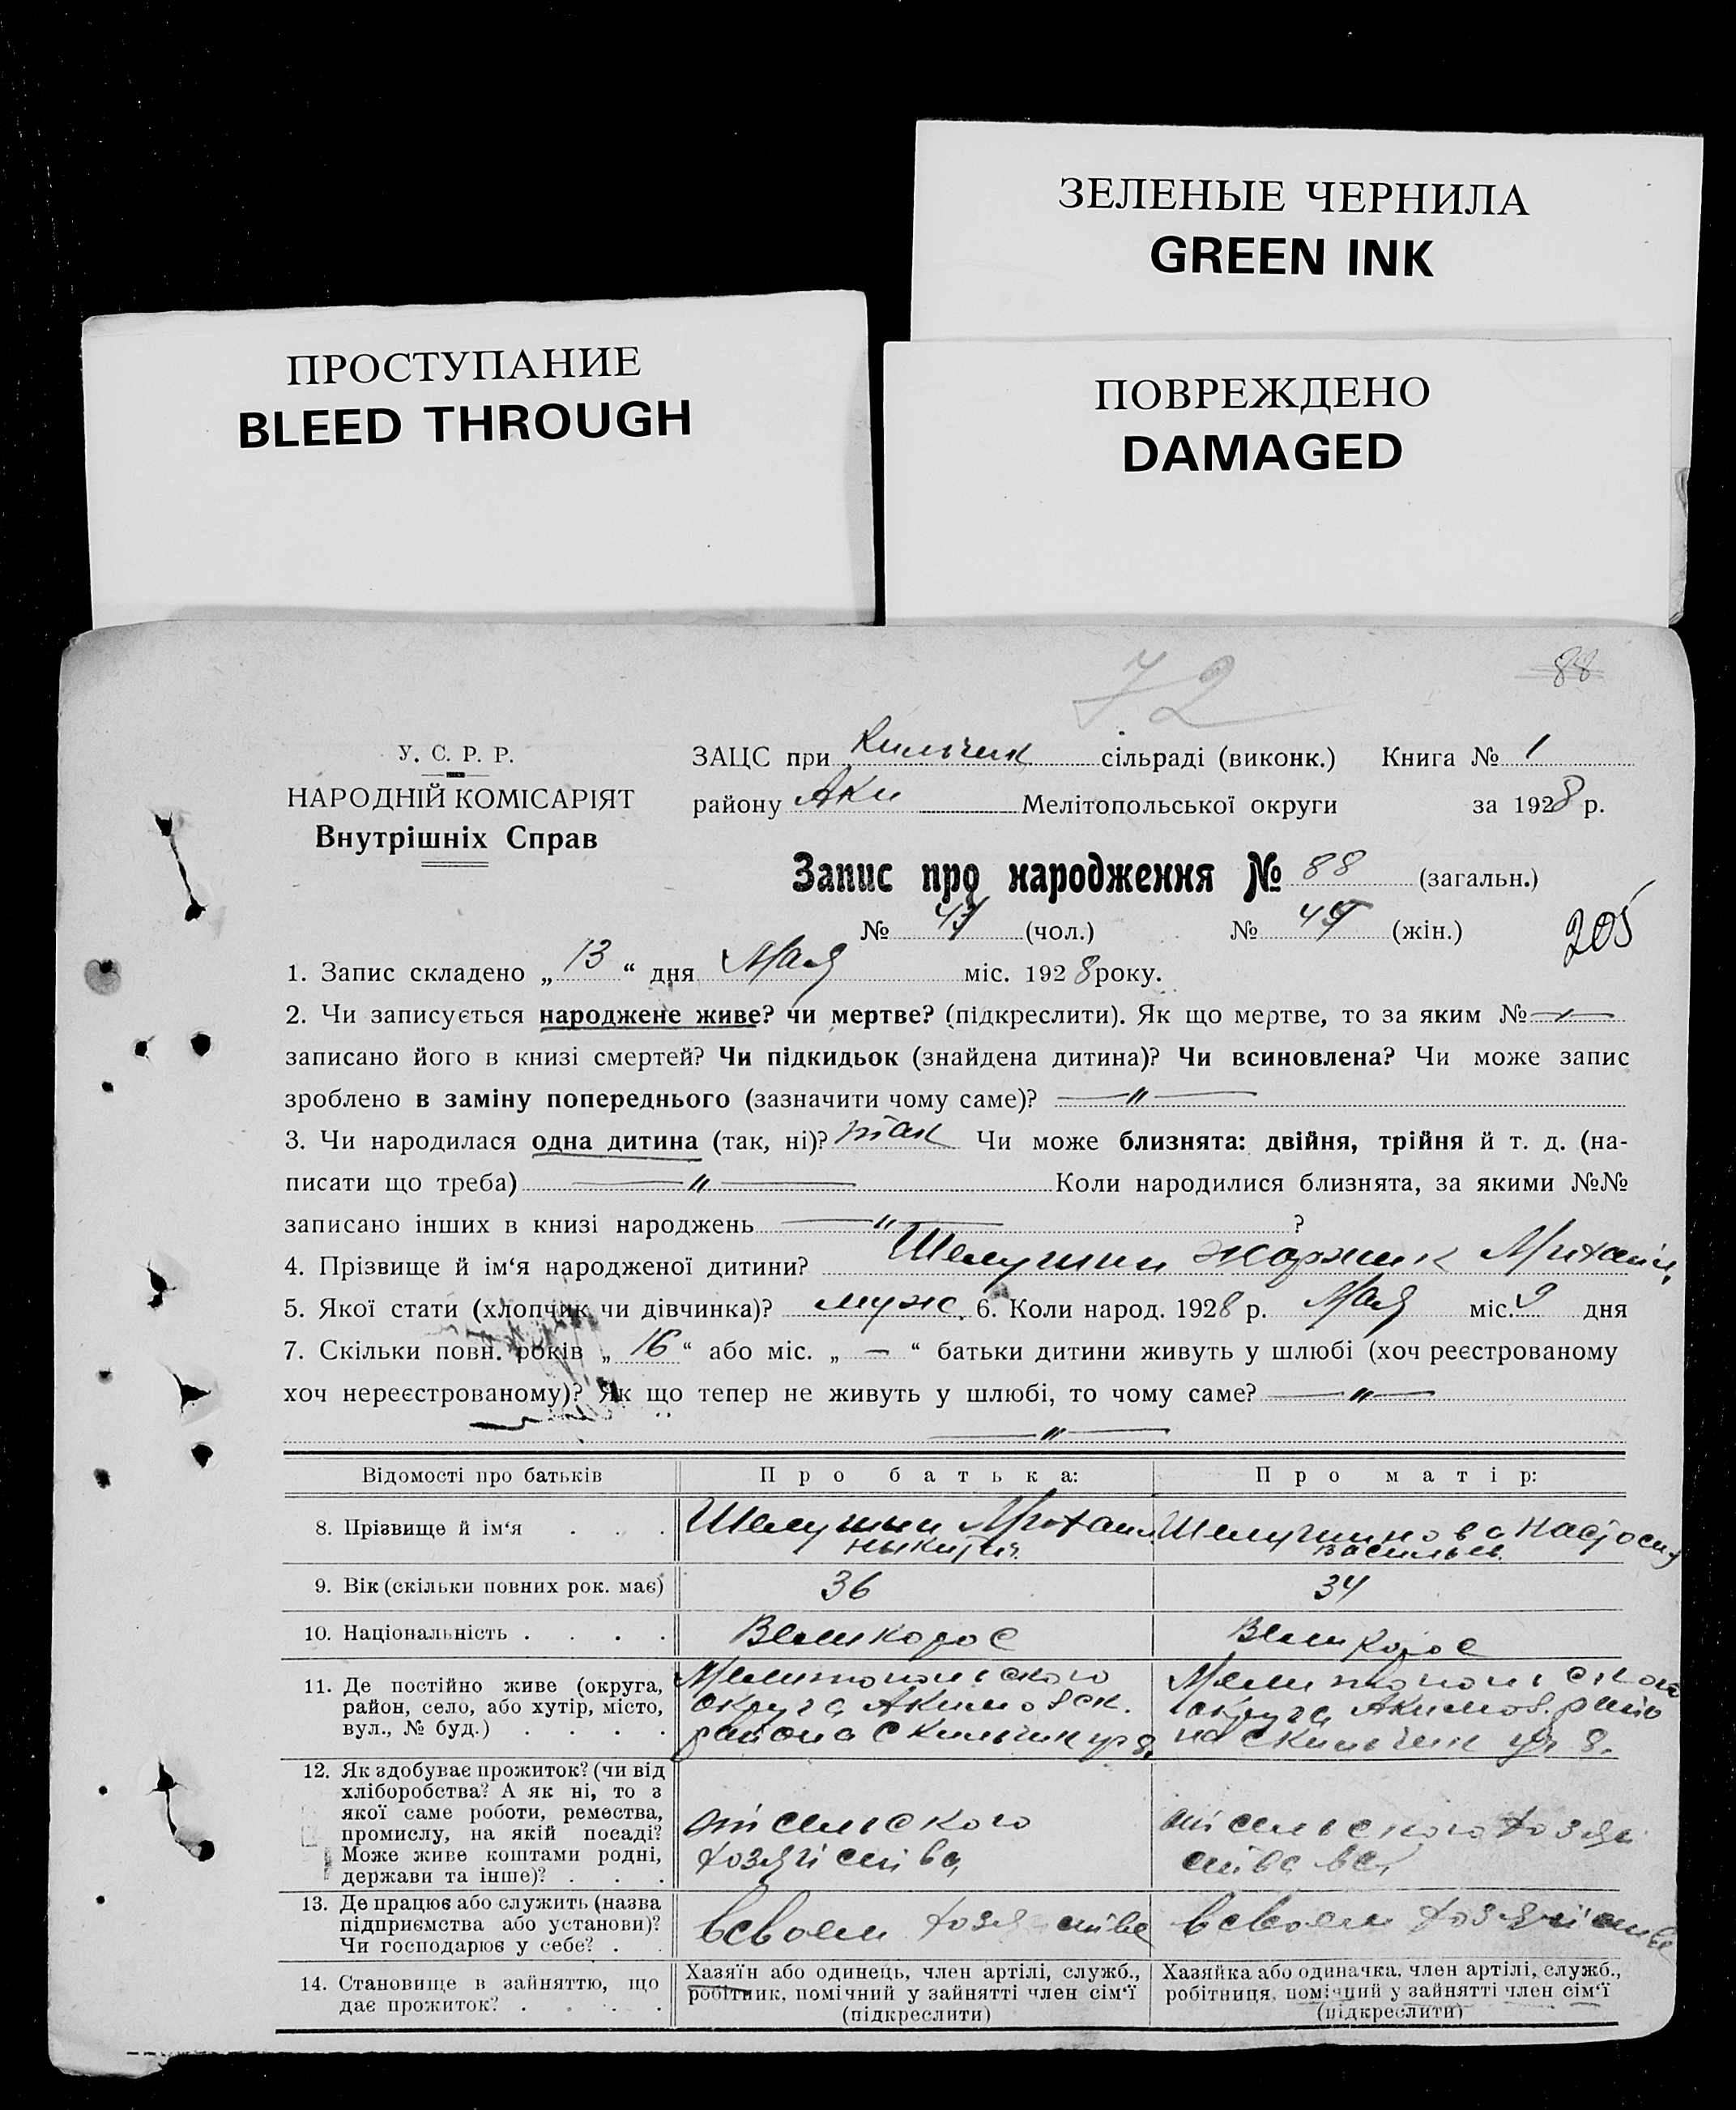 ЗЕЛЕНЫЕ ЧЕРНИЛА
GREEN INK
ПРОСТУПАНИЕ
BLEED THROUGH
ПОВРЕЖДЕНО
DAMAGED
72
88
У. С. Р. Р.
НАРОДНІЙ КОМІСАРІЯТ
Внутрішніх Справ
ЗАЦС при Кильчик сільраді (виконк.) Книга № 1
району Аки Мелітопольської округи за 1928 р.
Запис про народження № 88 (загальн.)
№ (чол.) № (жін.) 205
1. Запис складено „ 13 “ дня Мая міс. 1928 року.
2. Чи записується народжене живе? чи мертве? (підкреслити). Як що мертве, то за яким №
записано його в книзі смертей? Чи підкидьок (знайдена дитина)? Чи всиновлена? Чи може запис
зроблено в заміну попереднього (зазначити чому саме)? — " —
3. Чи народилася одна дитина (так, ні)? так Чи може близнята: двійня, трійня й т. д. (на-
писати що треба) — " — Коли народилися близнята, за якими №№
записано інших в книзі народжень — " — ?
4. Прізвище й ім'я народженої дитини?
5. Якої стати (хлопчик чи дівчинка)? муж. 6. Коли народ. 1928 р. Мая міс. 9 дня
7. Скільки повн. років „ 16 “ або міс. „ — “ батьки дитини живуть у шлюбі (хоч реєстрованому
хоч нереєстрованому)? Як що тепер не живуть у шлюбі, то чому саме? — " —
— " —
Відомості про батьків Про батька: Про матір:
8. Прізвище й ім'я
9. Вік (скільки повних рок. має) 36 34
10. Національність Великорос Великорос
11. Де постійно живе (округа,
район, село, або хутір, місто,
вул., № буд.)
Мелитопольского
округа Акимовск.
района с Кильчик
округа Акимов. райо
на с Кильчик
12. Як здобуває прожиток? (чи від
хліборобства? А як ні, то з
якої саме роботи, ремества,
промислу, на якій посаді?
Може живе коштами родні,
держави та інше)?
сильского
сильского
13. Де працює або служить (назва
підприємства або установи)?
Чи господарює у себе?
всвоем
всвоем
14. Становище в зайняттю, що
дає прожиток?
Хазяїн або одинець, член артілі, служб.,
робітник, помічний у зайнятті член сім'ї
(підкреслити)
Хазяйка або одиначка, член артілі, служб.,
робітниця, помічний у зайнятті член сім'ї
(підкреслити)